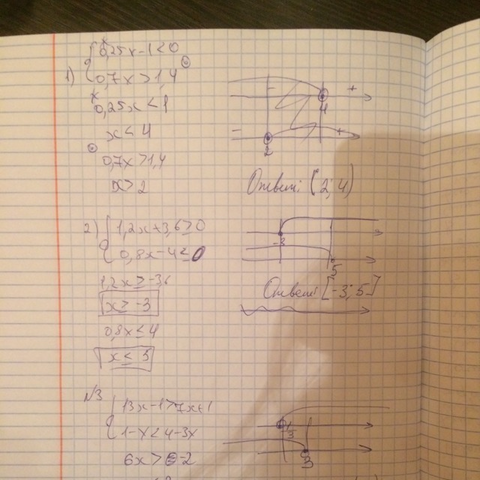 1) { 0,25x-1<0
0,7x>1,4
0,25x<1
x<4
0,7x>1,4
x>2
- + 4
- + 2
Ответ: (2; 4)
2) { 1,2x+3,6≥0
0,8x-4≤0
1,2x≥-3,6
x≥-3
0,8x≤4
x≤5
-3
5
Ответ: [-3; 5]
№3 { 13x-1>7x+1
1-x<4-3x